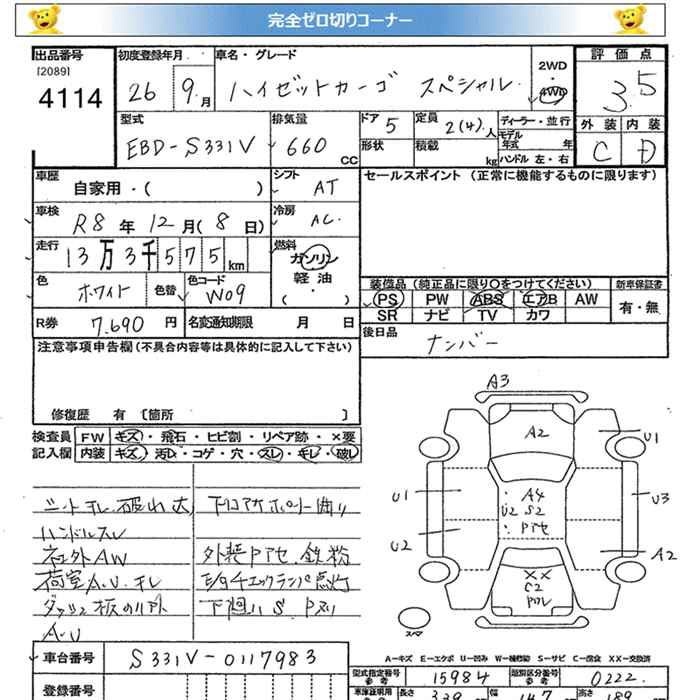 完全ゼロ切りコーナー
出品番号
[2089]
4114
初度登録年月
26 9 月
車名・グレード
ハイゼットカーゴ スペシャル
2WD
・
4WD
評価点
3.5
外装 内装
C D
型式
EBD-S331V
排気量
660 CC
ドア
5
形状
定員
2(4)人
積載
kg
ディーラー・並行
モデル
年式 年
ハンドル 左・右
車歴
自家用・( )
シフト
AT
車検
R8年12月(8日)
冷房
AC
走行
13万3千575km
燃料
ガソリン
軽油
( ・ )
色
ホワイト
色替
色コード
W09
R券
7.690 円
名変通知期限 月 日
セールスポイント (正常に機能するものに限ります)
装備品 (純正品に限り○をつけてください)
新車保証書
PS PW ABS エアB AW
SR ナビ TV カワ
有・無
後日品
ナンバー
注意事項申告欄(不具合内容等は具体的に記入して下さい)
修復歴 有 〔箇所 〕
検査員
記入欄
FW キズ・飛石・ヒビ割・リペア跡・×要
内装 キズ・汚レ・コゲ・穴・スレ・キレ・破レ
シートキレ.破れ大
ハンドルスレ
社外AW
荷室A.U.キレ
A.U
下コアサポート曲り
外装Pアセ.鉄粉
E/gチェックランプ点灯
下廻りS
A3
A2
U1
U1
A4
U2 S2
Pアセ
U3
U2
A2
XX
C2
スペア
A-キズ E-エクボ U-凹み W-補修跡 S-サビ C-腐食 XX-交換済
車台番号
S331V-0117983
登録番号
型式指定番号
参考
15984
類別区分番号
参考
0222
車庫証明用
長さ
339
幅
147
高さ
189